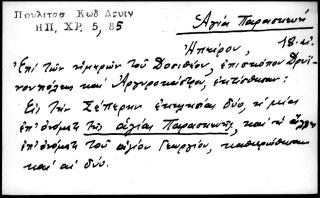 Πουλιτσα Κωδ Δρυιν
ΗΠ, ΧΡ. 5, 85
Ἁγία Παρασκευὴ
Ἠπείρου, 18. αἰ.
Ἐπὶ τῶν ἡμερῶν τοῦ Δοσιθέου, ἐπισκόπου Δρυϊ-
νουπόλεως καὶ Ἀργυροκάστρου, ἐκτίσθησαν:
Εἰς τὴν Σέπερην ἐκκλησίαι δύο, ἡ μία
ἐπ' ὀνόματι τῆς ἁγίας Παρασκευῆς, καὶ ἡ ἄλλη
ἐπ' ὀνόματι τοῦ ἁγίου Γεωργίου, καθιερώθησαν
καὶ αἱ δύο.